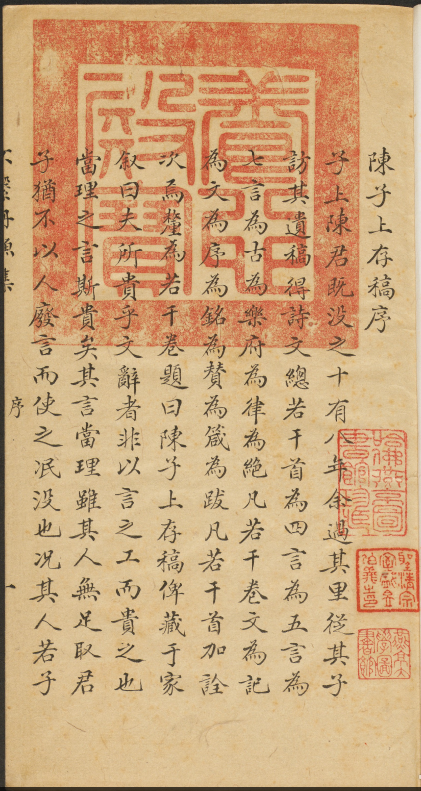 陳子上存稿序
子上陳君既没之十有八年余過其里從其子
訪其遺稿得詩文總若干首為四言為五言為
七言為古為樂府為律為絕凡若干卷文為記
為文為序為銘為賛為箴為跋凡若干首加詮
次焉釐為若干卷題曰陳子上存稿俾藏于家
叙曰夫所貴乎文辭者非以言之工而貴之也
當理之言斯貴矣其言當理雖其人無足取君
子猶不以人廢言而使之泯没也况其人若子
不繫舟漁集
序
一